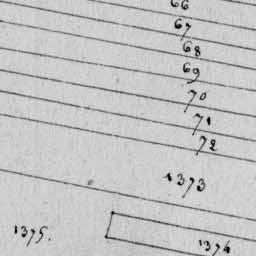 66
67
68
69
70
71
72
1373
1374
1375.